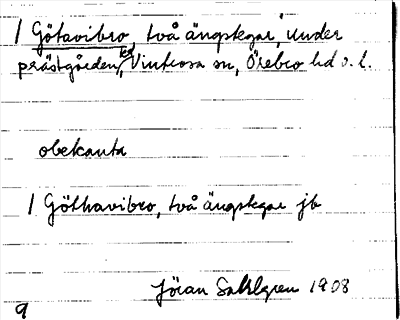 / Götavibro, två ängstegar, under
prästgården, Vintrosa sn, Örebro hd o. l.
obekanta
/ Göthavibro, två ängstegar jb
Jöran Sahlgren 1908
9